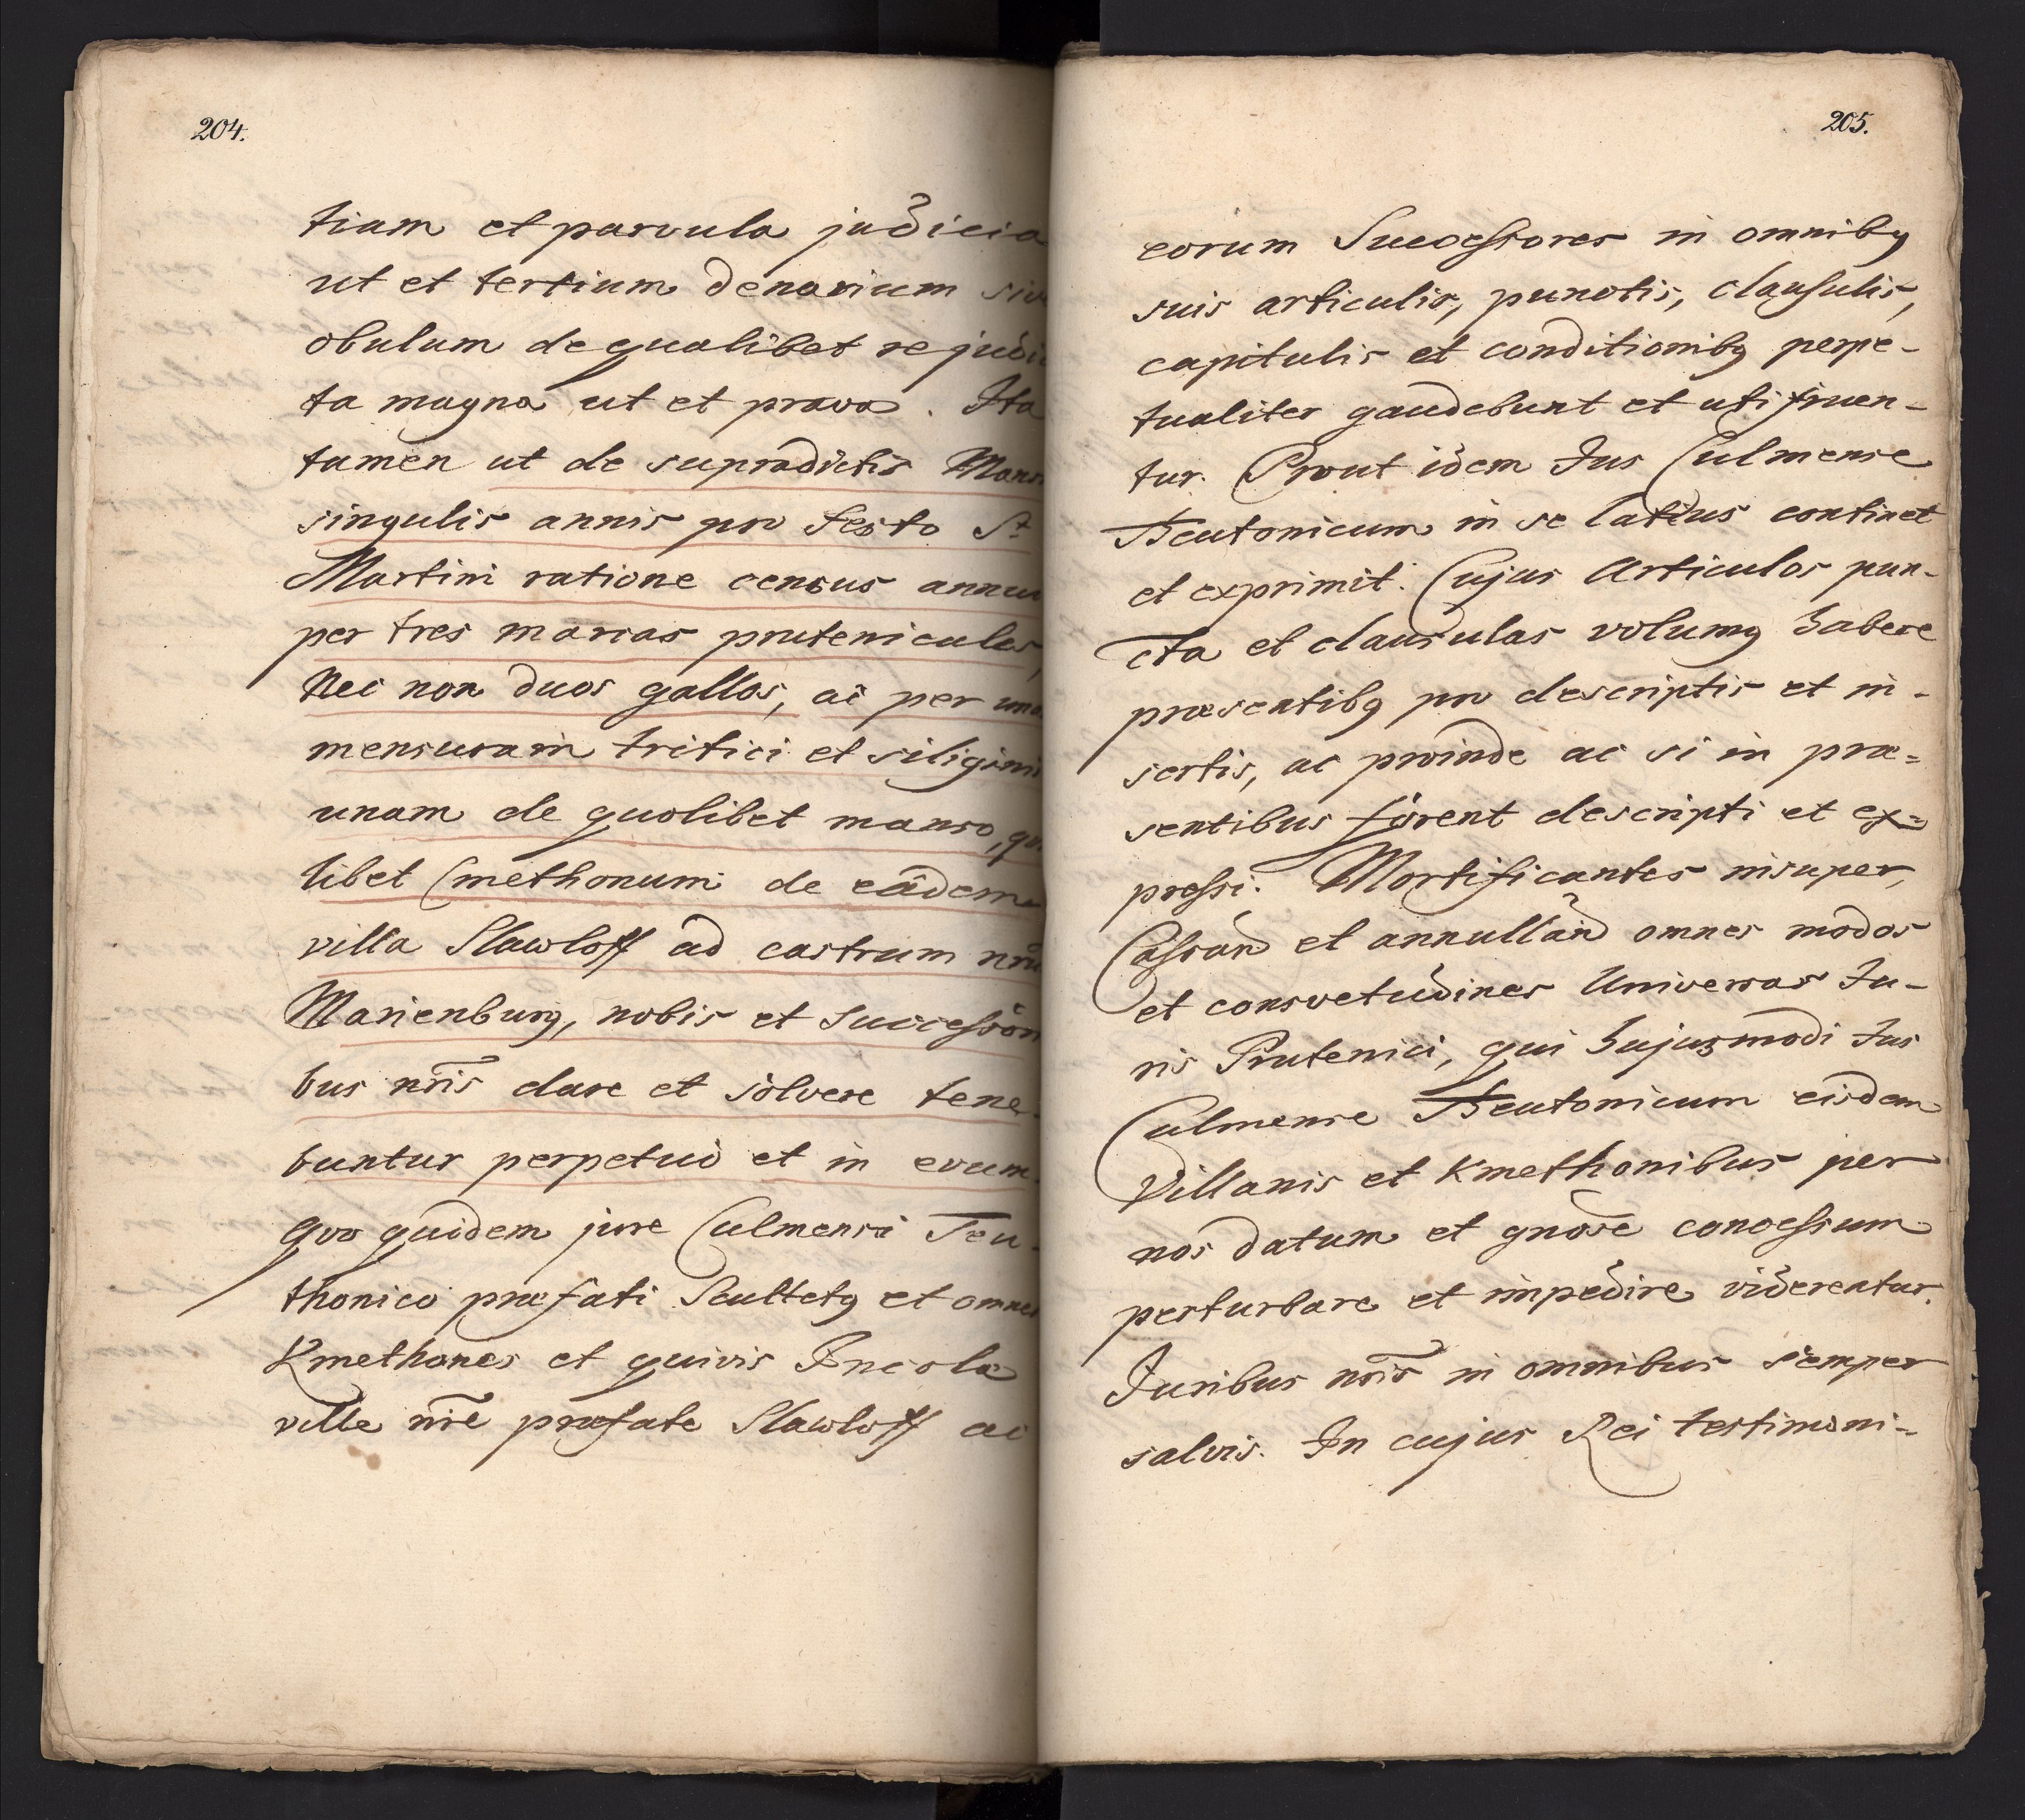 204.
tiam et parvula judicia
ut et tertium denarium siv
obulum de qualibet re judi
ta magna ut et prava. Ita
tamen ut de supradictis Mans
singulis annis pro festo St
Martini ratione census annu
per tres marcas pruteniculas,
Nec non duos gallos, ac per una
mensuram tritici et siligini
unam de quolibet manso, qu
libet Cmethonum de eâdem
villa Slawloff ad castrum nrû
Marienburg, nobis et successor̃i
bus nr̃is dare et solvere tene-
buntur perpetuò et in evum.
Quo quidem jure Culmensi Teu-
thonico præfati Scultetq et omnes
Kmethones et quivis Incola
ville nr̃e præfate Slawloff ac
205.
eorum Successores in omnibq
suis articulis, punctis, clausulis,
capitulis et conditionibq perpe-
tualiter gaudebunt et uti fruen-
tur. Prout idem Jus Culmense
Teutonicum in se latius continet
et exprimit. Cujus Articulos pun-
cta et clausulas volumq habere
præsentibq pro descriptis et in-
sertis, ac proinde ac si in præ=
sentibus forent descripti et ex=
pressi. Mortificantes insuper,
Cassand et annulland omnes modos
et consvetudines Universas Ju-
ris Prutenici, qui hujusmodi Jus
Culmense Teutonicum eisdem
Villanis et Kmethonibus per
nos datum et gnõse concessum
perturbare et impedire viderentur.
Juribus nr̃is in omnibus semper
salvis. In cujus Rei testimoni-